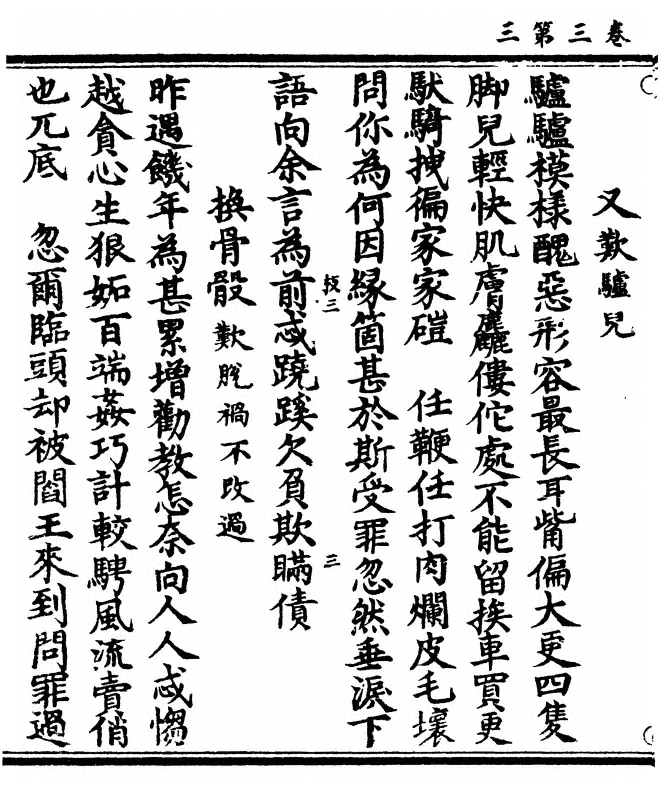 卷三第三
又歎驢兒
驢驢模樣醜惡形容最長耳觜偏大更四隻
脚兒輕快肌膚麤僂佗處不能留挨車買更
馱騎拽徧家家磑　任鞭任打肉爛皮毛壞
問你為何因緣箇甚於斯受罪忽然垂淚下
語向余言為前忒蹺蹊欠負欺瞞債
換骨骰　歎脫禍不改過
昨遇饑年為甚累增勸教怎奈向人人忒㥮
越貪心生狠妬百端姦巧計較騁風流賣俏
也兀底　忽爾臨頭却被閻王來到問罪過
三